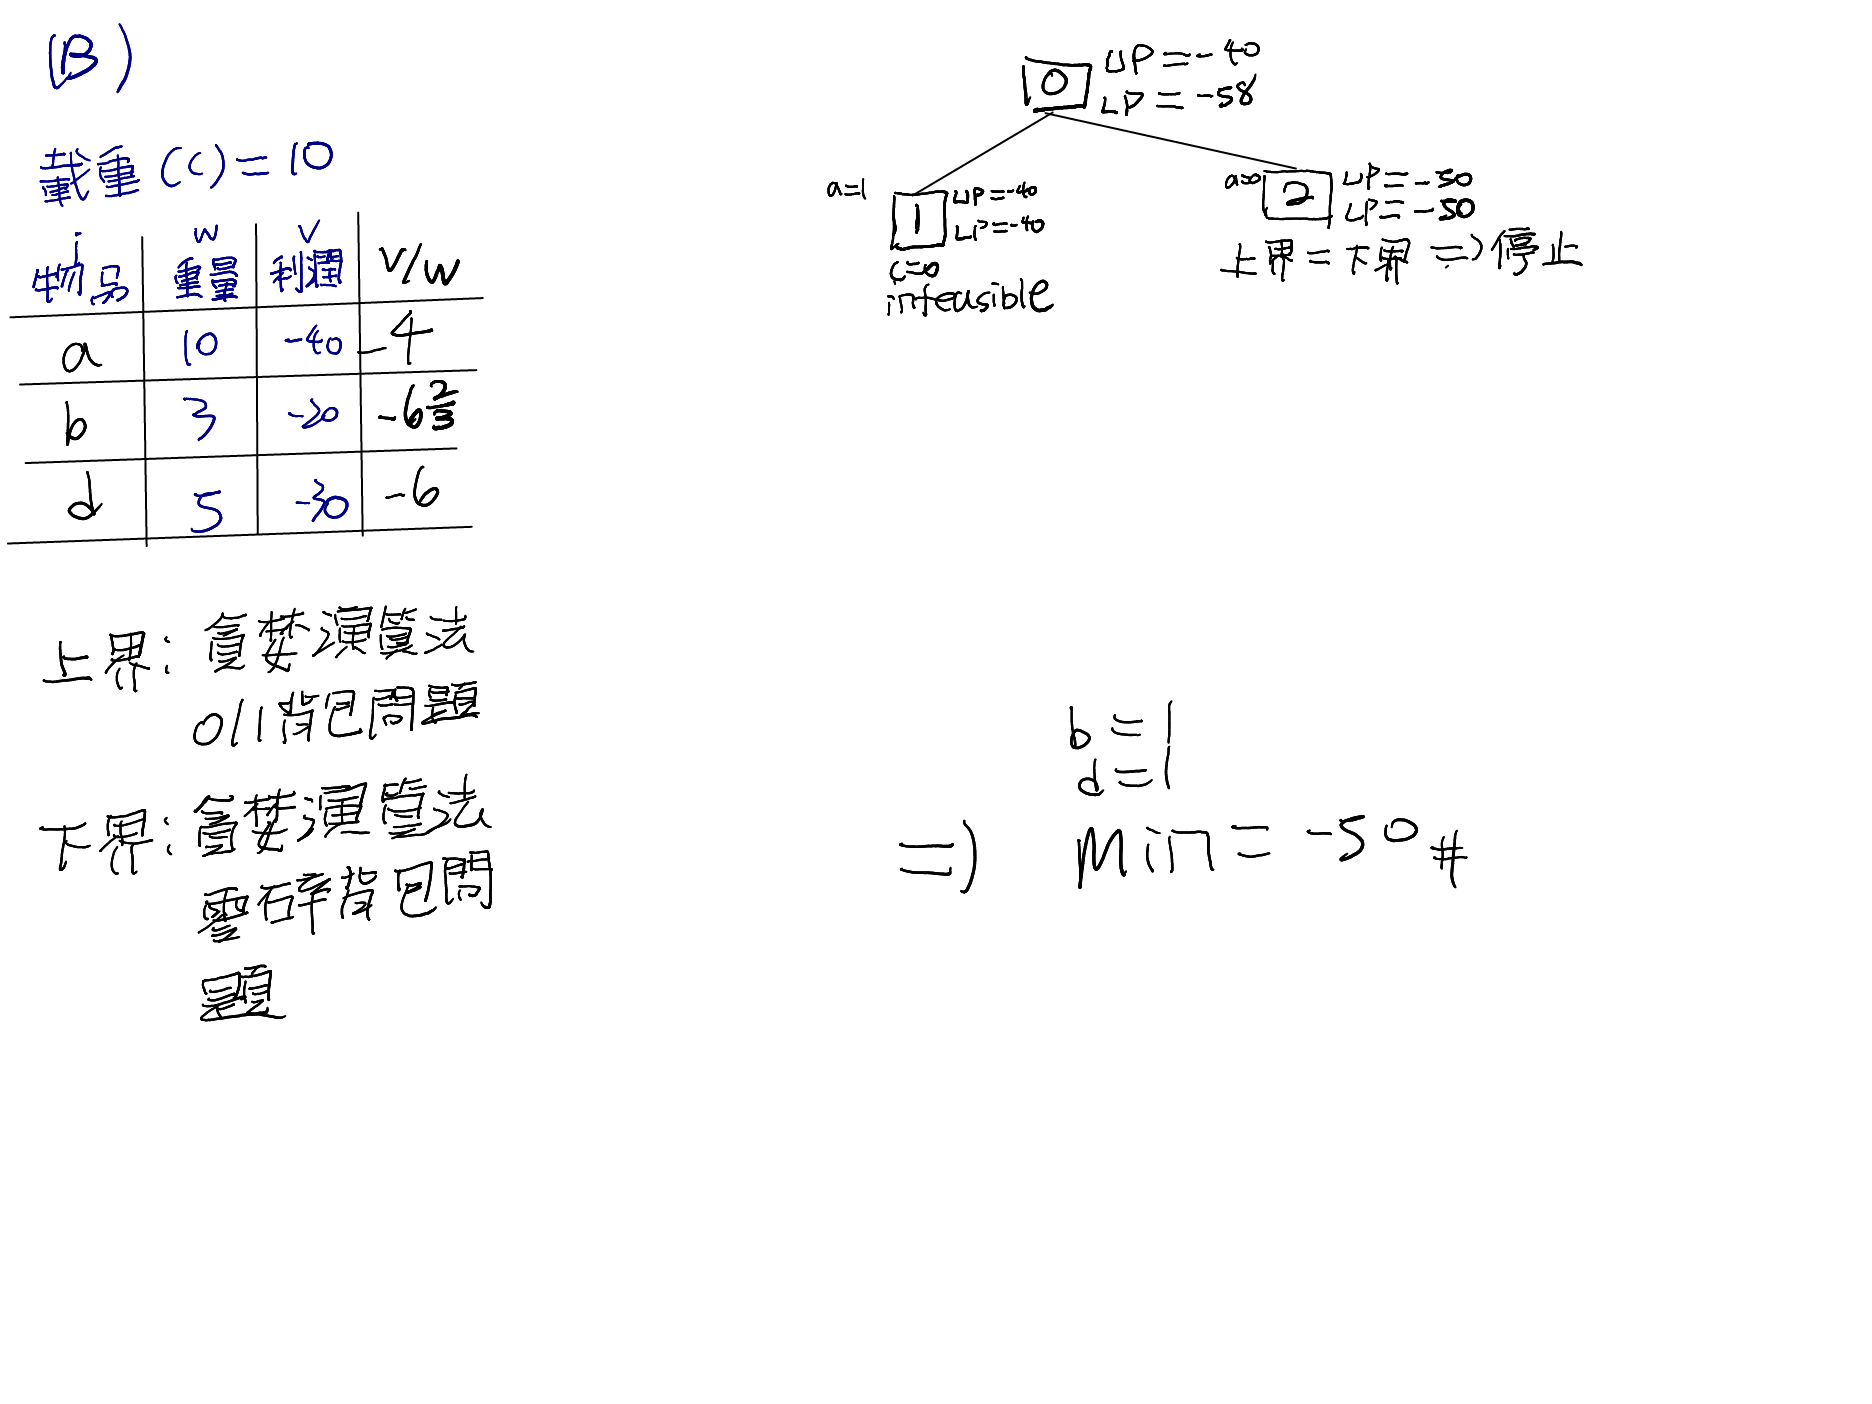 (B)
載重(C)=10
i w v
物品 重量 利潤 V/w
a 10 -40 -4
b 3 -20 -6 2/3
d 5 -30 -6
上界:貪婪演算法
0/1背包問題
下界:貪婪演算法
零碎背包問
題
0 UP=-40
LP=-58
a=1 1 UP=-40
LP=-40
C=0
infeasible
a=0 2 UP=-50
LP=-50
上界=下界 =>停止
b=1
d=1
=> Min=-50#